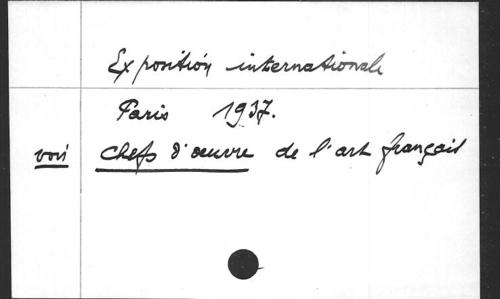 Exposition internationale
Paris 1937.
voir chefs d'œuvre de l'art français